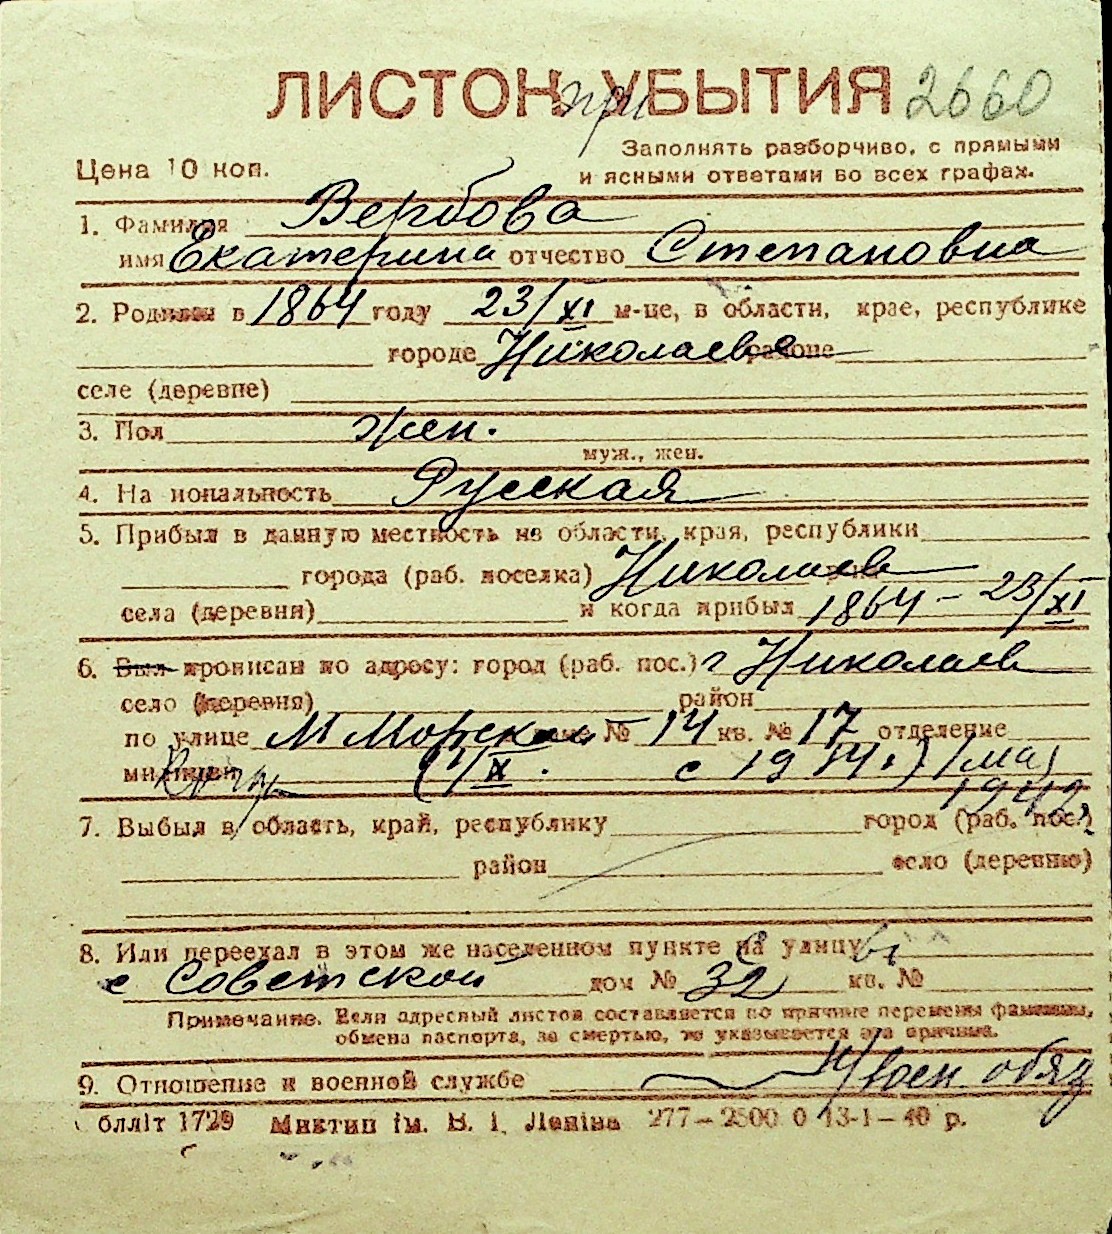 ЛИСТОК УБЫТИЯ 2660
при
Цена 10 коп.
Заполнять разборчиво, с прямыми
и ясными ответами во всех графах.
1. Фамилия Вербова
имя Екатерина отчество Степановна
2. Родился в 1864 году 23/XI м-це, в области, крае, республике
городе Николаеве районе
селе (деревне)
3. Пол жен.
муж., жен.
4. Национальность Русская
5. Прибыл в данную местность из области, края, республики
города (раб. поселка) Николаев
села (деревни) и когда прибыл 1864 – 23/XI
6. Был прописан по адресу: город (раб. пос.) г Николаев
село (деревня) район
по улице М Морская № 14 кв. № 17 отделение
милиции с 19 мая
1942
7. Выбыл в область, край, республику город (раб. пос.)
район село (деревню)
8. Или переехал в этом же населенном пункте на улицу
с Советской дом № 32 кв. №
Примечание. Если адресный листок составляется по причине перемены фамилии,
обмена паспорта, за смертью, то указывается эта причина.
9. Отношение к военной службе н/воен. обяз
блліт 1729 Миктип ім. В. І. Леніна 277–2500 0 13-1-40 р.